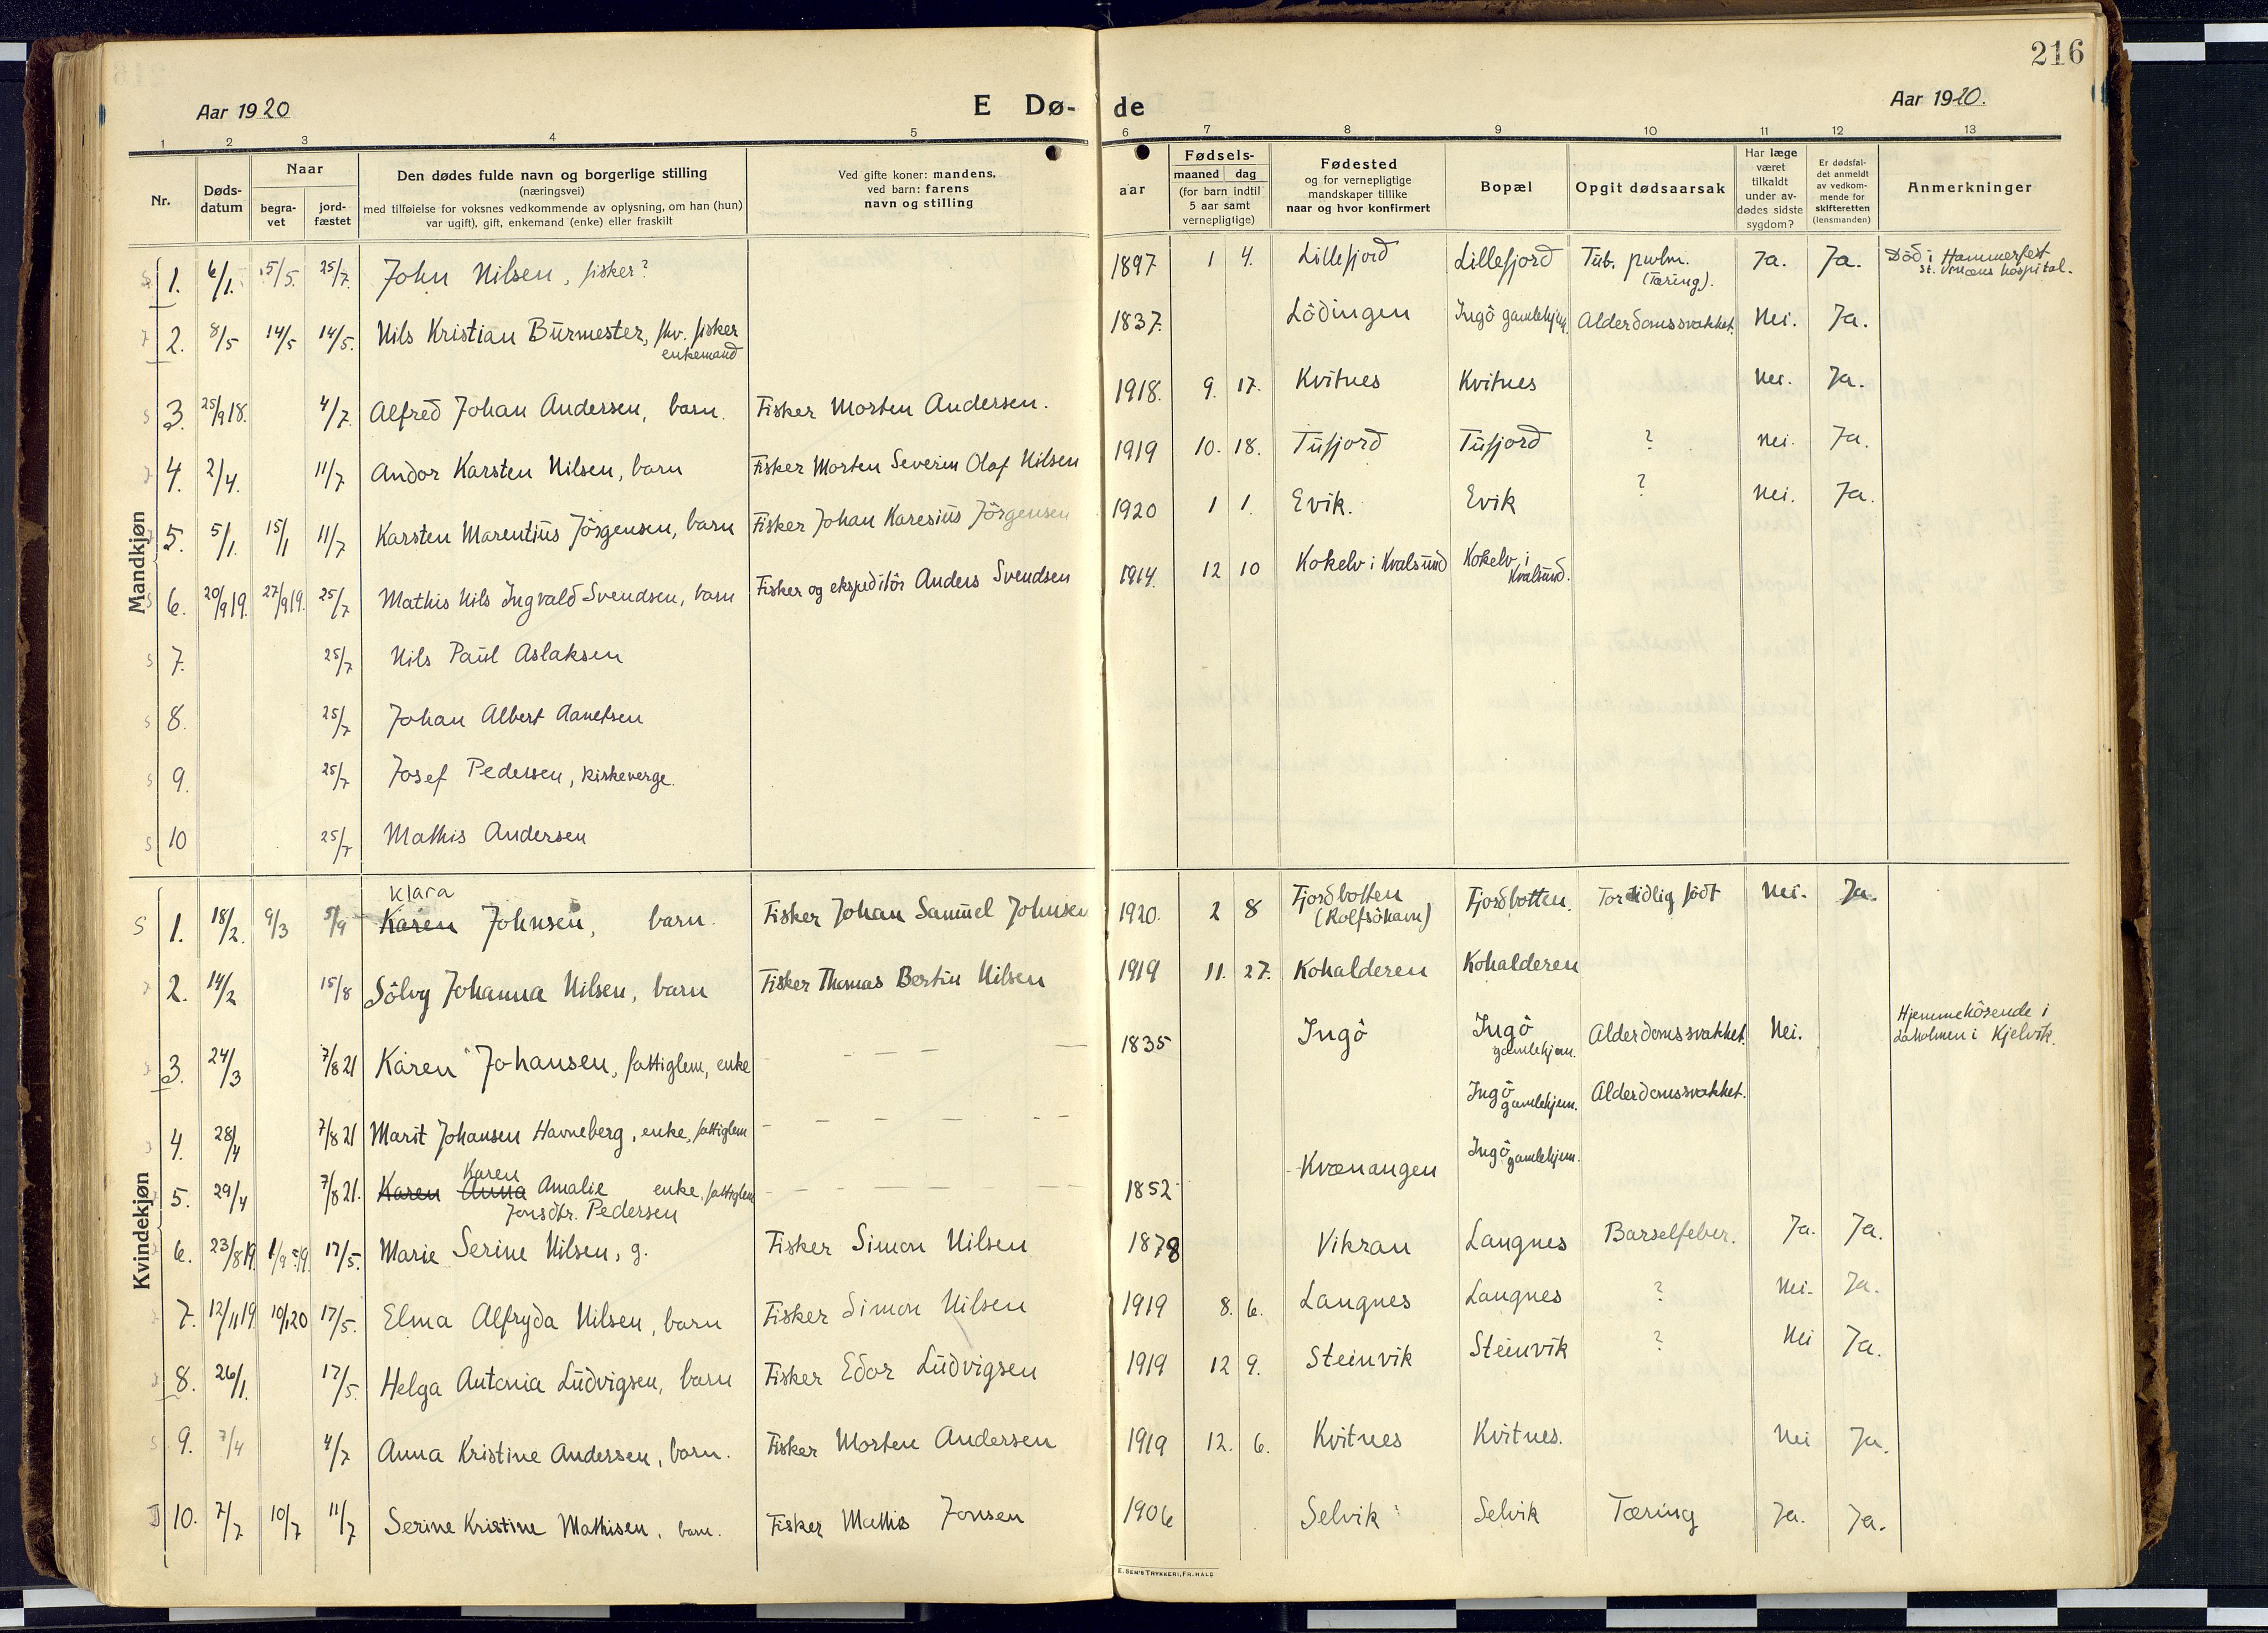 216
Aar 1920
E Dø-
de
Aar 1920.
1 2 3 4 5 6 7 8 9 10 11 12 13
Nr.
Døds-
datum
Naar
begra-
vet
jord-
fæstet
Den dødes fulde navn og borgerlige stilling
(næringsvei)
med tilføielse for voksnes vedkommende av oplysning, om han (hun)
var ugift), gift, enkemand (enke) eller fraskilt
Ved gifte koner: mandens,
ved barn: farens
navn og stilling
aar
Fødsels-
maaned dag
(for barn indtil
5 aar samt
vernepligtige)
Fødested
og for vernepligtige
mandskaper tillike
naar og hvor konfirmert
Bopæl
Opgit dødsaarsak
Har læge
været
tilkaldt
under av-
dødes sidste
sygdom?
Er dødsfal-
det anmeldt
av vedkom-
mende for
skifteretten
(lensmanden)
Anmerkninger
Mandkjøn
1. 6/1. 15/5. 25/7. John Nilsen, fisker? 1897 1 4. Lillefjord Lillefjord Tub. pulm. (Tæring). Ja. Ja. Död i Hammerfest
st. hospital.
2. 8/5 14/5 14/5. Nils Kristian Burmester, fhv. fisker 1837. Lödingen Ingö gamlehjem Alderdomssvakhet. Nei. Ja.
enkemand
3. 25/9 18. 4/7. Alfred Johan Andersen, barn. Fisker Morten Andersen. 1918. 9. 17. Kvitnes Kvitnes Nei. Ja.
4. 2/4. 11/7 Andor Karsten Nilsen, barn Fisker Morten Severin Olaf Nilsen 1919 10. 18. Tufjord Tufjord ? Nei. Ja.
5. 5/1. 15/1 11/7 Karsten Marentius Jörgensen, barn Fisker Johan Karesius Jörgensen 1920 1 1. Evik. Evik ? Nei. Ja.
6. 20/9 19. 27/9 19. 25/7 Mathis Nils Ingvald Svendsen, barn Fisker og ekspeditör Anders Svendsen 1914. 12 10 Kokelv i Kvalsund Kokelv i
Kvalsund.
7. 25/7 Nils Paul Aslaksen
8. 25/7 Johan Albert Aanetsen
9. 25/7 Josef Pedersen, kirkeverge.
10 25/7 Mathis Andersen
Kvindekjøn
Klara
1. 18/2. 9/3 5/9 Karen Johnsen, barn. Fisker Johan Samuel Johnsen 1920. 2 8 Fjordbotten (Rolfsöhavn) Fjordbotten. For tidlig födt Nei. Ja.
2. 14/2 15/8 Sölvy Johanna Nilsen, barn Fisker Thomas Bertin Nilsen 1919 11. 27. Kohalderen Kohalderen
3. 24/3 7/8 21 Karen Johansen, fattiglem, enke 1835 Ingö Ingö gamlehjem. Alderdomssvakhet. Nei. Hjemmehörende i
i Kjelvik.
4. 28/4 7/8 21 Marit Johansen Havneberg, enke, fattiglem Ingö gamlehjem. Alderdomssvakhet.
Karen
5. 29/4 7/8 21. Karen Anna Amalie enke, fattiglem 1852 Kvænangen Ingö gamlehjem.
Jonsdtr. Pedersen
6. 23/8 19. 1/9 19. 17/5. Marie Serine Nilsen, g. Fisker Simon Nilsen 1878 Vikran Langnes Barselfeber. Ja. Ja.
7. 12/11 19. 10/1 20 17/5. Elma Alfryda Nilsen, barn Fisker Simon Nilsen 1919 8. 6. Langnes Langnes ? Nei. Ja.
8. 26/1. 17/5. Helga Antonia Ludvigsen, barn Fisker Edor Ludvigsen 1919 12 9. Steinvik Steinvik ? Nei Ja.
9. 7/4 4/7 Anna Kristine Andersen, barn. Fisker Morten Andersen 1919 12. 6. Kvitnes Kvitnes. Nei Ja.
10. 7/7 10/7 11/7 Serine Kristine Mathisen, barn. Fisker Mathis Jonsen 1906 Selvik Selvik Tæring Ja. Ja.
E. SEM'S TRYKKERI, FR.HALD